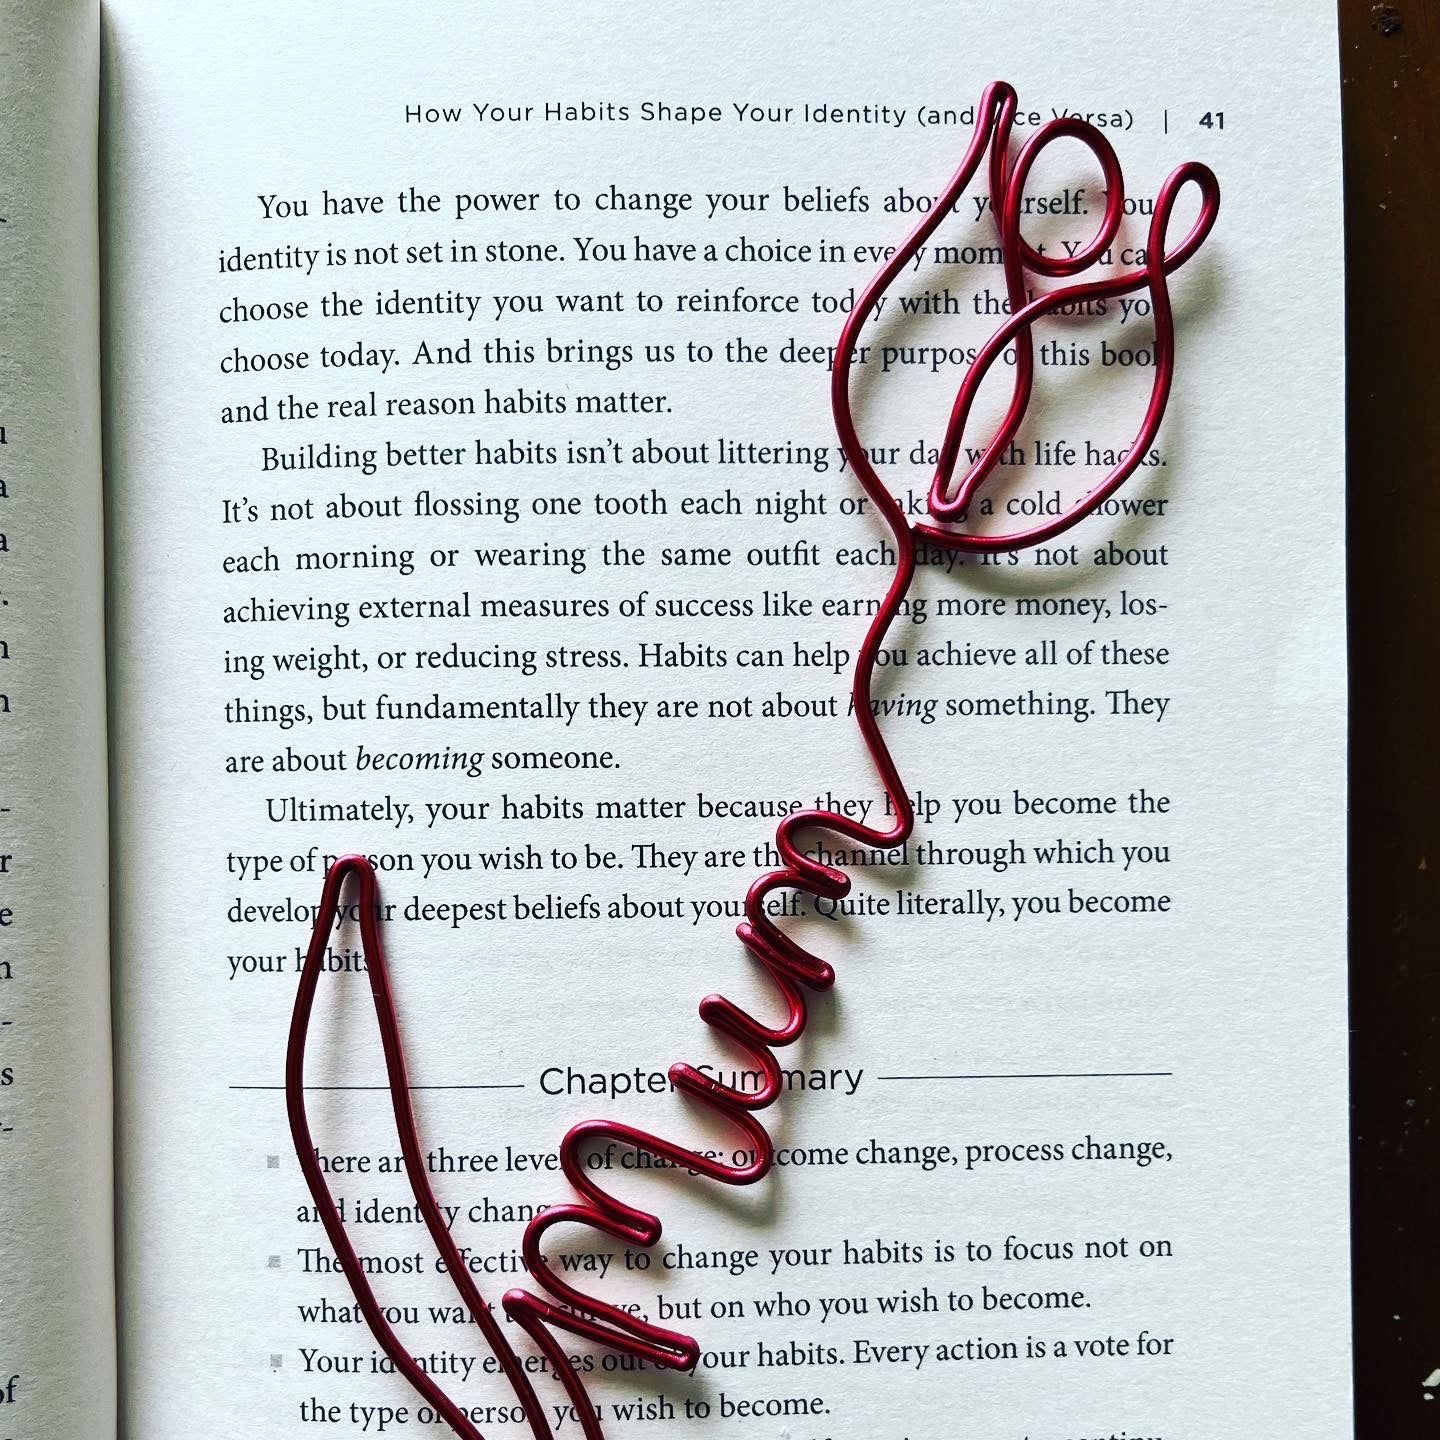 How Your Habits Shape Your Identity (and Vice Versa) | 41
You have the power to change your beliefs about yourself. Your
identity is not set in stone. You have a choice in every moment. You can
choose the identity you want to reinforce today with the habits you
choose today. And this brings us to the deeper purpose of this book
and the real reason habits matter.
Building better habits isn't about littering your day with life hacks.
It's not about flossing one tooth each night or taking a cold shower
each morning or wearing the same outfit each day. It's not about
achieving external measures of success like earning more money, los-
ing weight, or reducing stress. Habits can help you achieve all of these
things, but fundamentally they are not about having something. They
are about becoming someone.
Ultimately, your habits matter because they help you become the
type of person you wish to be. They are the channel through which you
develop your deepest beliefs about yourself. Quite literally, you become
your habits.
mum
Chapter Summary
There are three levels of change: outcome change, process change,
and identity change.
The most effective way to change your habits is to focus not on
what you want to achieve, but on who you wish to become.
Your identity emerges out of your habits. Every action is a vote for
the type of person you wish to become.